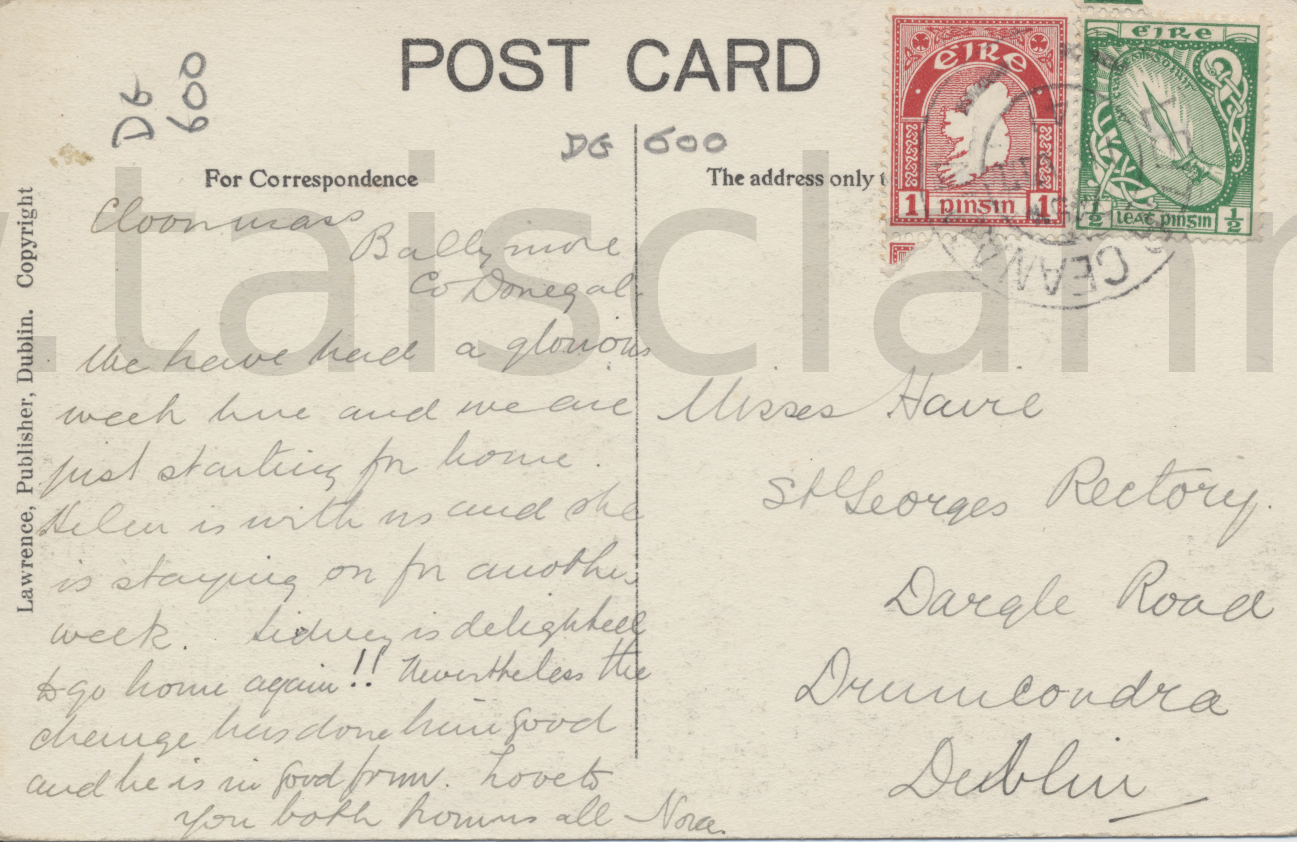 POST CARD
DG
600
DG 600
For Correspondence
The address only t
Lawrence, Publisher, Dublin. Copyright
Cloonmass
Ballymore
Co Donegal.
We have had a glorious
week here and we are
just starting for home.
Helen is with us and she
is staying on for another
week. Sidney is delighted
to go home again!! Nevertheless the
change has done him good
and he is in good form. Love to
you both from us all Nora.
Misses Haire
St Georges Rectory.
Dargle Road
Drumcondra
Dublin
éire
1 pinsin 1
éire
1/2 leat pinsin 1/2
CEANA
.taisclann